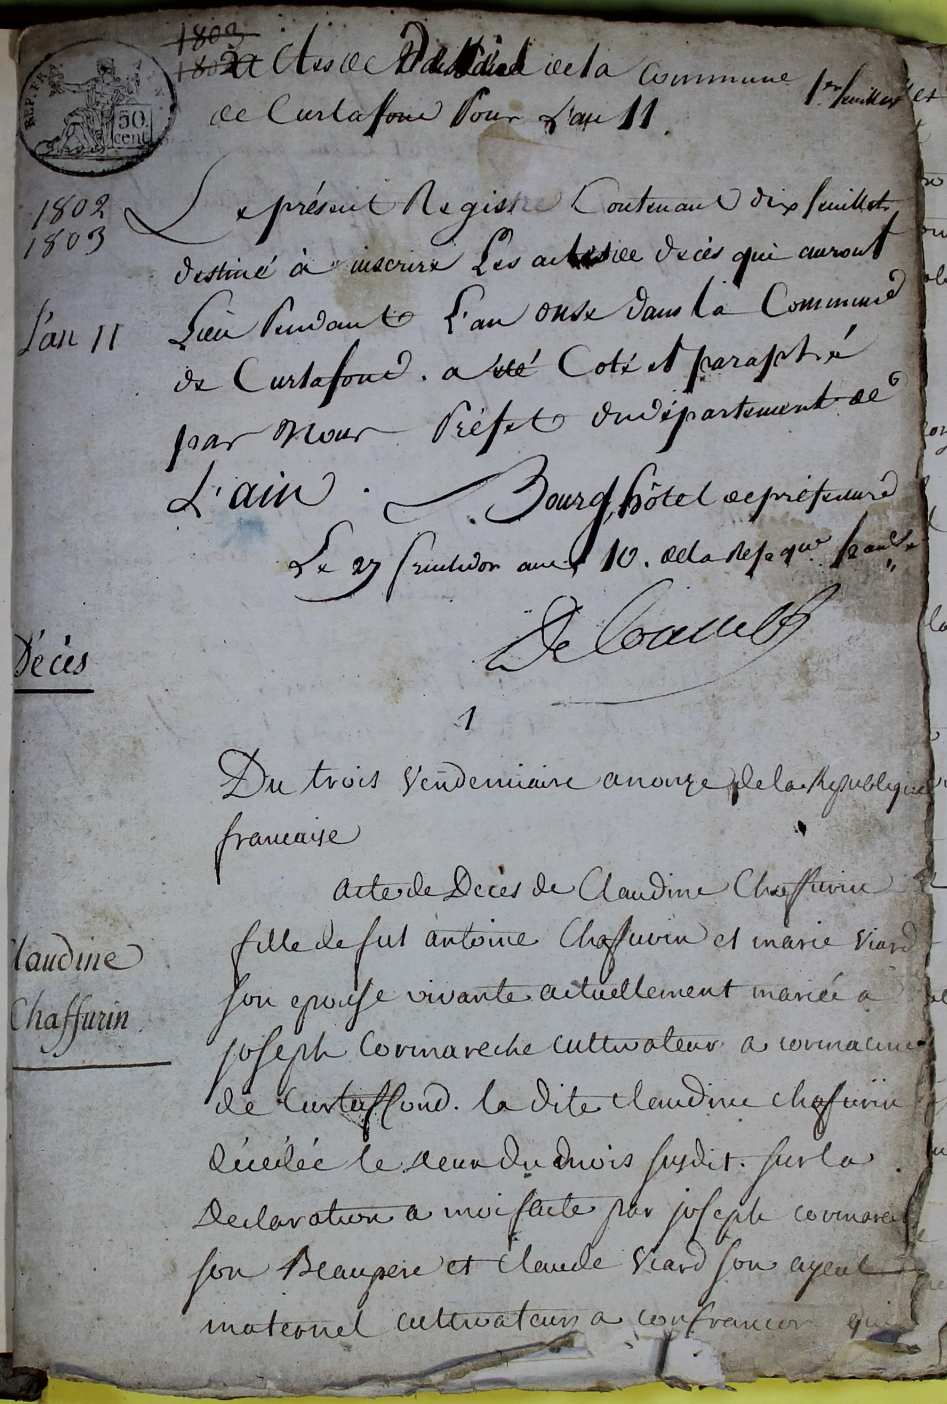 1803
Actes de Décès de la Commune
1er feuillet
de Curtafond Pour L'an 11.
REP. FRA.
50
cent
1802
1803
L'an 11
Le présent Registre Contenant dix feuillets
destiné à inscrire Les actes de décès qui auront
Lieu Pendant L'an onze dans la Commune
de Curtafond. a été Coté et paraphé
par Nous Préfet du département de
L'ain. Bourg, hôtel de préfecture
Le 27 fructidor an 10. de la Rep que franse
Décès
1
Du trois Vendemiaire an onze de la Republique
francaise
acte de Décès de Claudine Chaffurin
Claudine
Chaffurin
fille de fut antoine Chaffurin et marie Viard
son epouse vivante actuellement mariée a
joseph Cormareche cultivateur a
de Curtaffond. la dite Claudine chafurin
décédée le deux du mois susdit. sur la
declaration a moi faite par joseph cormarec
son Beaupere et Claude Viard son ayeul
maternel cultivateurs a confrancon qui